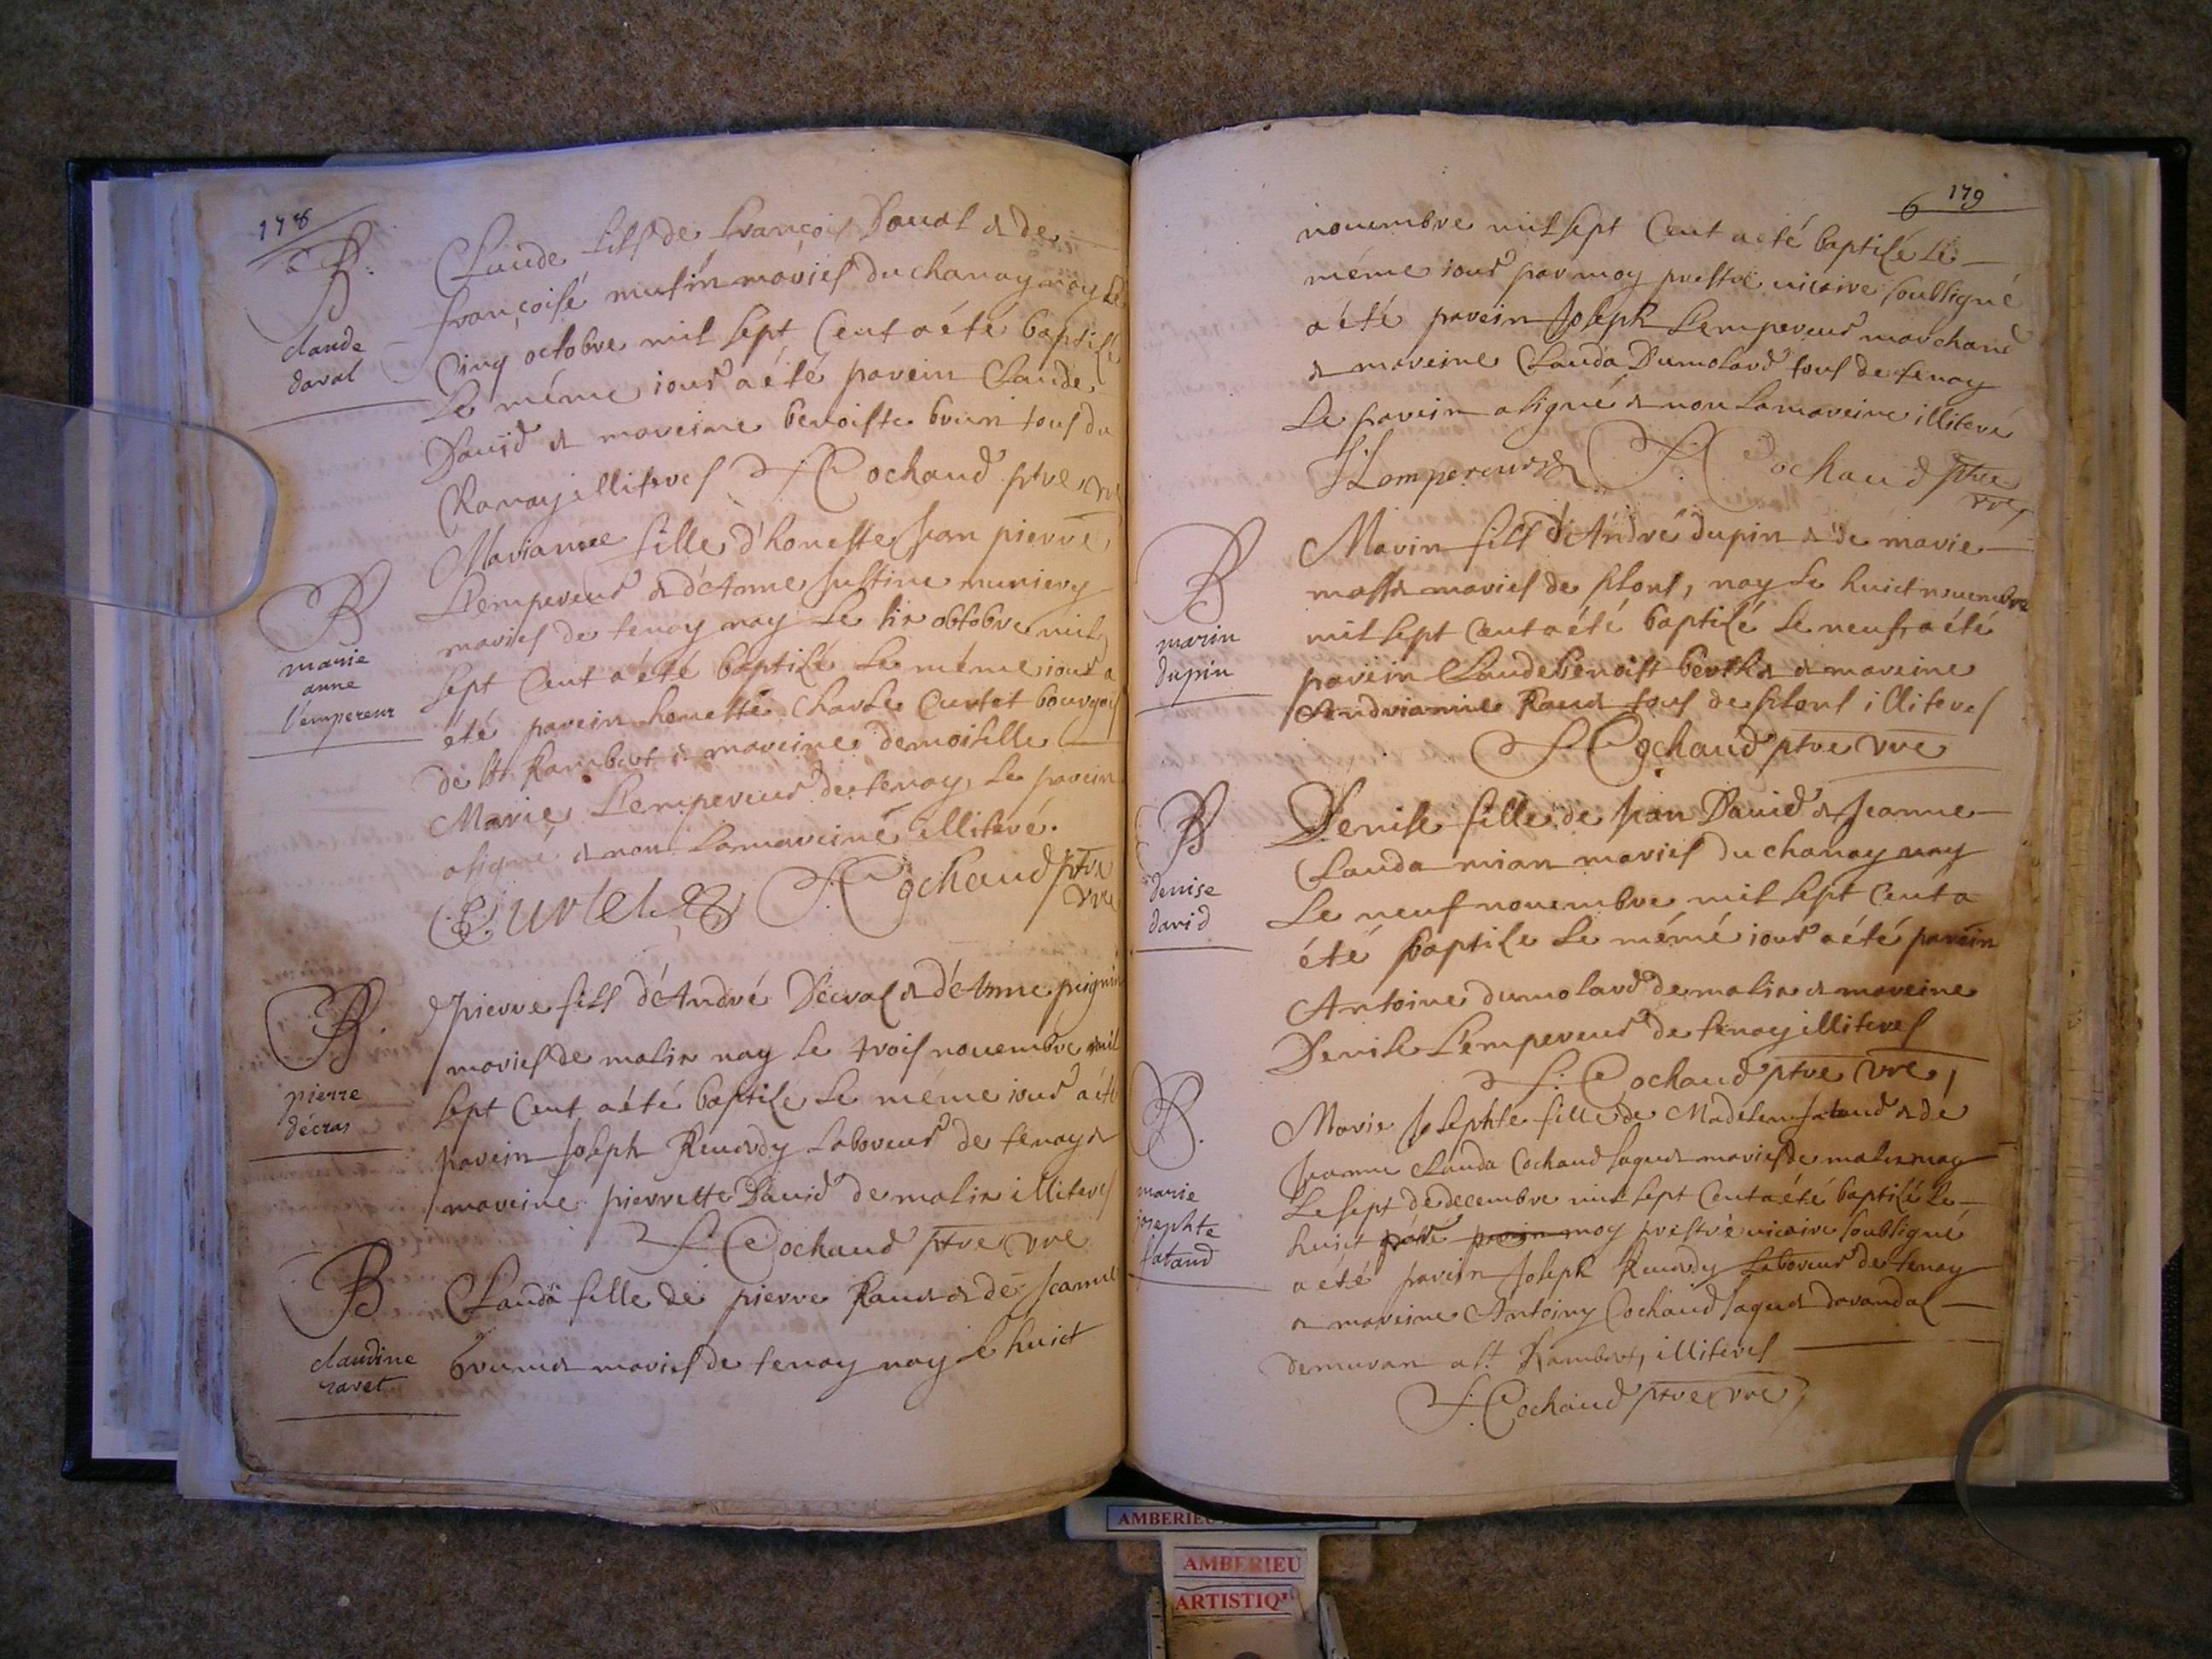 178
B.
claude
daval
Claude fils de françois Daval & de
françoise musin mariés du chanay nay le
cinq octobre mil sept cent a été baptisé
le méme iour a été parein Claude
David & mareine benoiste brun tous du
Chanay illiterés F. Cochaud ptre vre
B
marie
anne
l'empereur
Marianne fille d'honeste Jean pierre
L'empereur & d'Anne Justine muniery
mariés de tenay nay le six obtobre mil
sept cent a été baptisé le méme iour a
été parein honeste Charle Curtet bourgois
de st Rambert & mareine demoiselle
Marie L'empereur de tenay, le parein
a signé & non la mareine illiteré.
Curtet F. Cochaud ptre
vre
B.
pierre
décras
pierre fils d'André Décras & d'Anne
mariés de malix nay le trois nouembre mil
sept cent a été baptisé le méme iour a été
parein Joseph Reuerdy laboreur de tenay &
mareine pierrette David de malix illiterés
F. Cochaud ptre vre
B
claudine
ravet
Clauda fille de pierre & de Jeanne
mariés de tenay nay le huict
179
6
nouembre mil sept cent a été baptisé le
méme iour par moy prestre uicaire soubsigné
a été parein Joseph L'empereur marchand
& mareine Clauda Dumolard tous de tenay
Le parein a signé & non la mareine illiteré
J Lempereur F. Cochaud ptre
vre
B
marin
dupin
Marin fils d'André dupin & de marie
mariés de plont, nay le huict nouembre
mil sept cent a été baptisé le neuf, a été
parein Claude benoist & mareine
Andrianne tous de plont illiterés
F. Cochaud ptre vre
B
denise
david
Denise fille de Jean David & Jeanne
Clauda mian mariés du chanay nay
Le neuf nouembre mil sept cent a
été baptise le mémé iour a été parein
Antoine dumolard de malix & mareine
Denise L'empereur de tenay illiterés
F. Cochaud ptre vre
B.
marie
josephte
fataud
Marie Josephte fille de Madelein fataud & de
Jeanne Clauda Cochaud mariés de malix nay
Le sept de decembre mil sept cent a été baptisé le
huict moy prestre uicaire soubsigné
a été parein Joseph Reuerdy laboreur de tenay
& mareine Antoiny Cochaud
a st. Rambert, illiterés
F. Cochaud ptre vre
AMBERIEU
AMBERIEU
ARTISTIQ